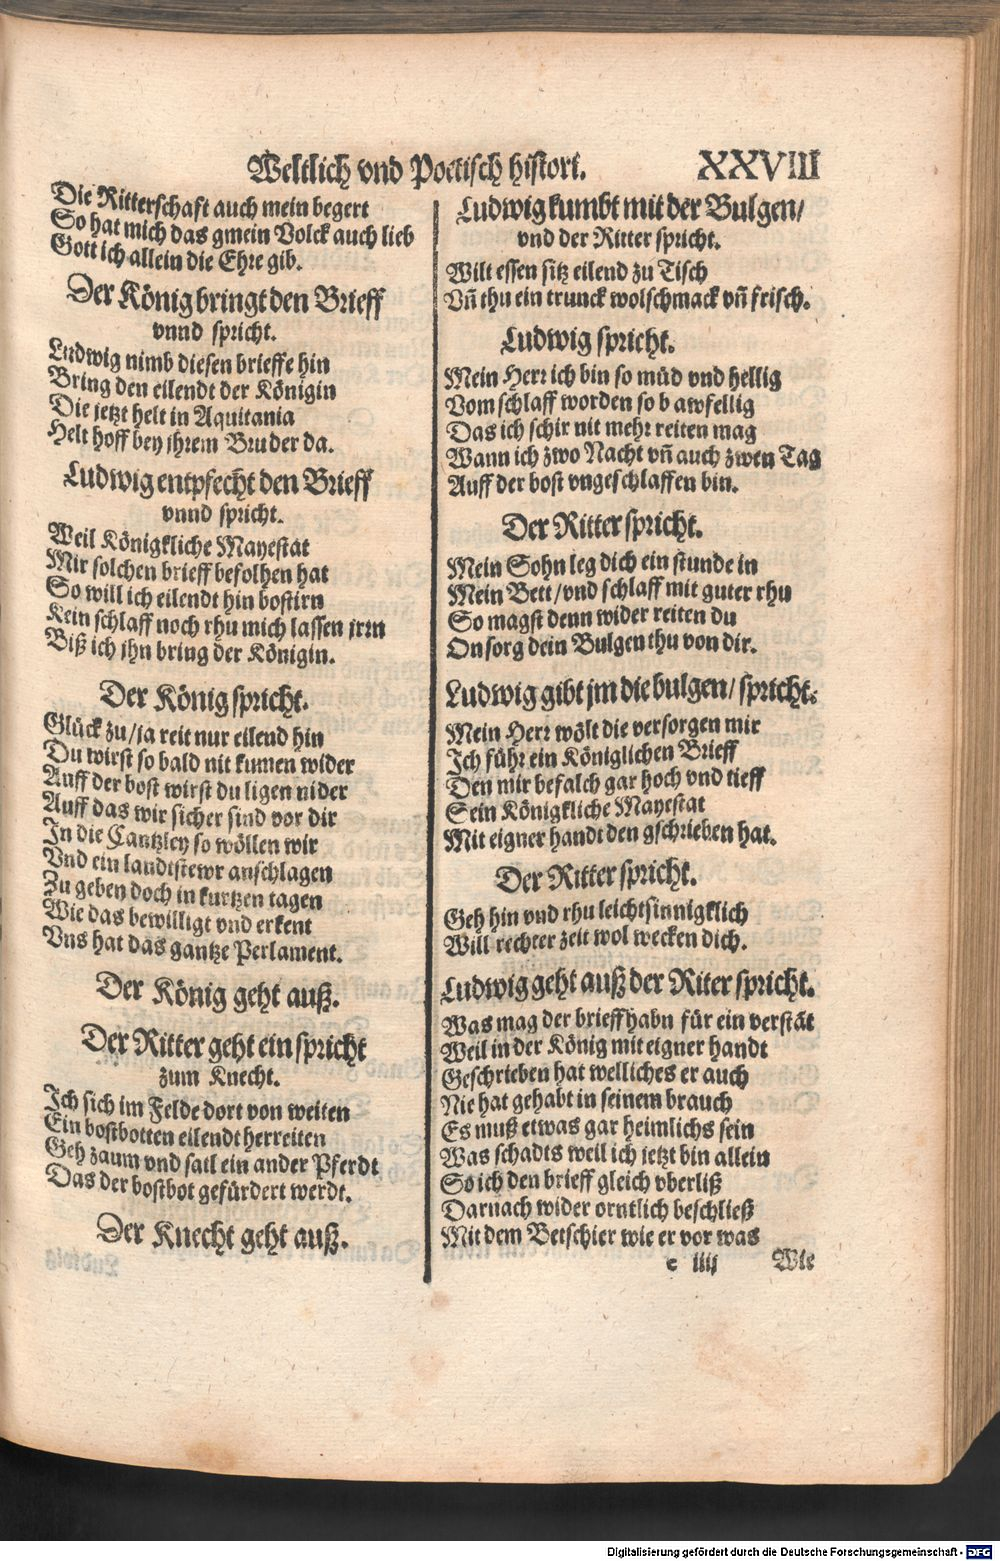 Weltlich vnd Poetisch histori. XXVIII
Die Ritterschaft auch mein begert
So hat mich das gmein Volck auch lieb
Gott ich allein die Ehre gib.
Der König bringt den Brieff
vnnd spricht.
Ludwig nimb diesen brieffe hin
Bring den eilendt der Königin
Die jetzt helt in Aquitania
Helt hoff bey jhrem Bruder da.
Ludwig entpfecht den Brieff
vnnd spricht.
Weil Königkliche Mayestat
Mir solchen brieff befolhen hat
So will ich eilendt hin bostirn
Kein schlaff noch rhu mich lassen jrrn
Biß ich jhn bring der Königin.
Der König spricht.
Glück zu/ja reit nur eilend hin
Du wirst so bald nit kumen wider
Auff der bost wirst du ligen nider
Auff das wir sicher sind vor dir
In die Cantzley so wöllen wir
Vnd ein landtstewr anschlagen
Zu geben doch in kurtzen tagen
Wie das bewilligt vnd erkent
Vns hat das gantze Perlament.
Der König geht auß.
Der Ritter geht ein spricht
zum Knecht.
Ich sich im Felde dort von weiten
Ein bostbotten eilendt herreiten
Geh zaum vnd satl ein ander Pferdt
Das der bostbot gefürdert werdt.
Der Knecht geht auß.
Ludwig kumbt mit der Bulgen/
vnd der Ritter spricht.
Wilt essen sitz eilend zu Tisch
Vñ thu ein trunck wolschmack vñ frisch.
Ludwig spricht.
Mein Herr ich bin so müd vnd hellig
Vom schlaff worden so b awfellig
Das ich schir nit mehr reiten mag
Wann ich zwo Nacht vñ auch zwen Tag
Auff der bost vngeschlaffen bin.
Der Ritter spricht.
Mein Sohn leg dich ein stunde in
Mein Bett/vnd schlaff mit guter rhu
So magst denn wider reiten du
On sorg dein Bulgen thu von dir.
Ludwig gibt jm die bulgen/ spricht:
Mein Herr wölt die versorgen mir
Ich führ ein Königlichen Brieff
Den mir befalch gar hoch vnd tieff
Sein Königkliche Mayestat
Mit eigner handt den gschrieben hat.
Der Ritter spricht.
Geh hin vnd rhu leichtsinnigklich
Will rechter zeit wol wecken dich.
Ludwig geht auß der Riter spricht.
Was mag der brieff habn für ein verstät
Weil in der König mit eigner handt
Geschrieben hat welliches er auch
Nie hat gehabt in seinem brauch
Es muß etwas gar heimlichs sein
Was schadts weil ich jetzt bin allein
So ich den brieff gleich vberliß
Darnach wider orntlich beschließ
Mit dem Betschier wie er vor was
c iiij Wie
Digitalisierung gefördert durch die Deutsche Forschungsgemeinschaft - DFG